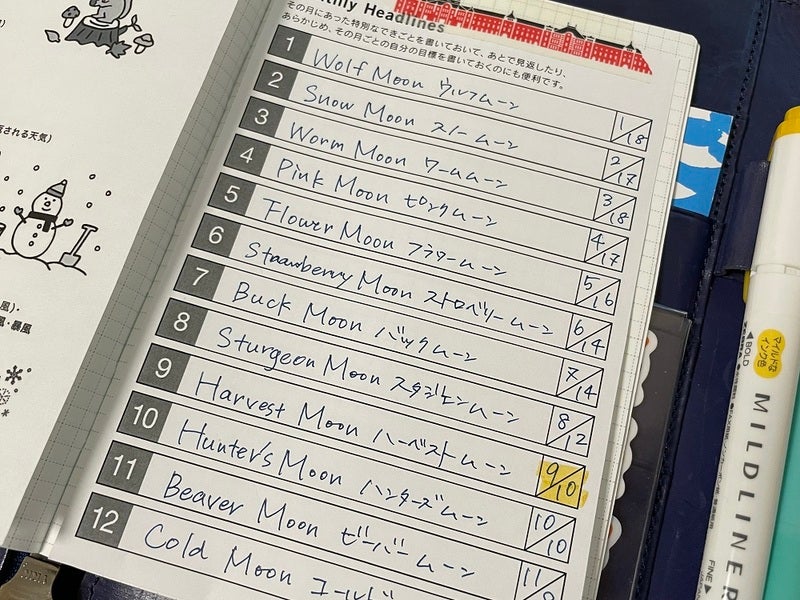 される天気）
風）・
風・暴風
Monthly Headlines
その月にあった特別なできごとを書いておいて、あとで見返したり、
あらかじめ、その月ごとの自分の目標を書いておくのにも便利です。
1 Wolf Moon ウルフムーン 1/18
2 Snow Moon スノームーン 2/17
3 Worm Moon ワームムーン 3/18
4 Pink Moon ピンクムーン 4/17
5 Flower Moon フラワームーン 5/16
6 Strawberry Moon ストロベリームーン 6/14
7 Buck Moon バックムーン 7/14
8 Sturgeon Moon スタジョンムーン 8/12
9 Harvest Moon ハーベストムーン 9/10
10 Hunter's Moon ハンターズムーン 10/10
11 Beaver Moon ビーバームーン 11/
12 Cold Moon コールド
◀BOLD
マイルドな
インク色
MILDLINER
FINE▶